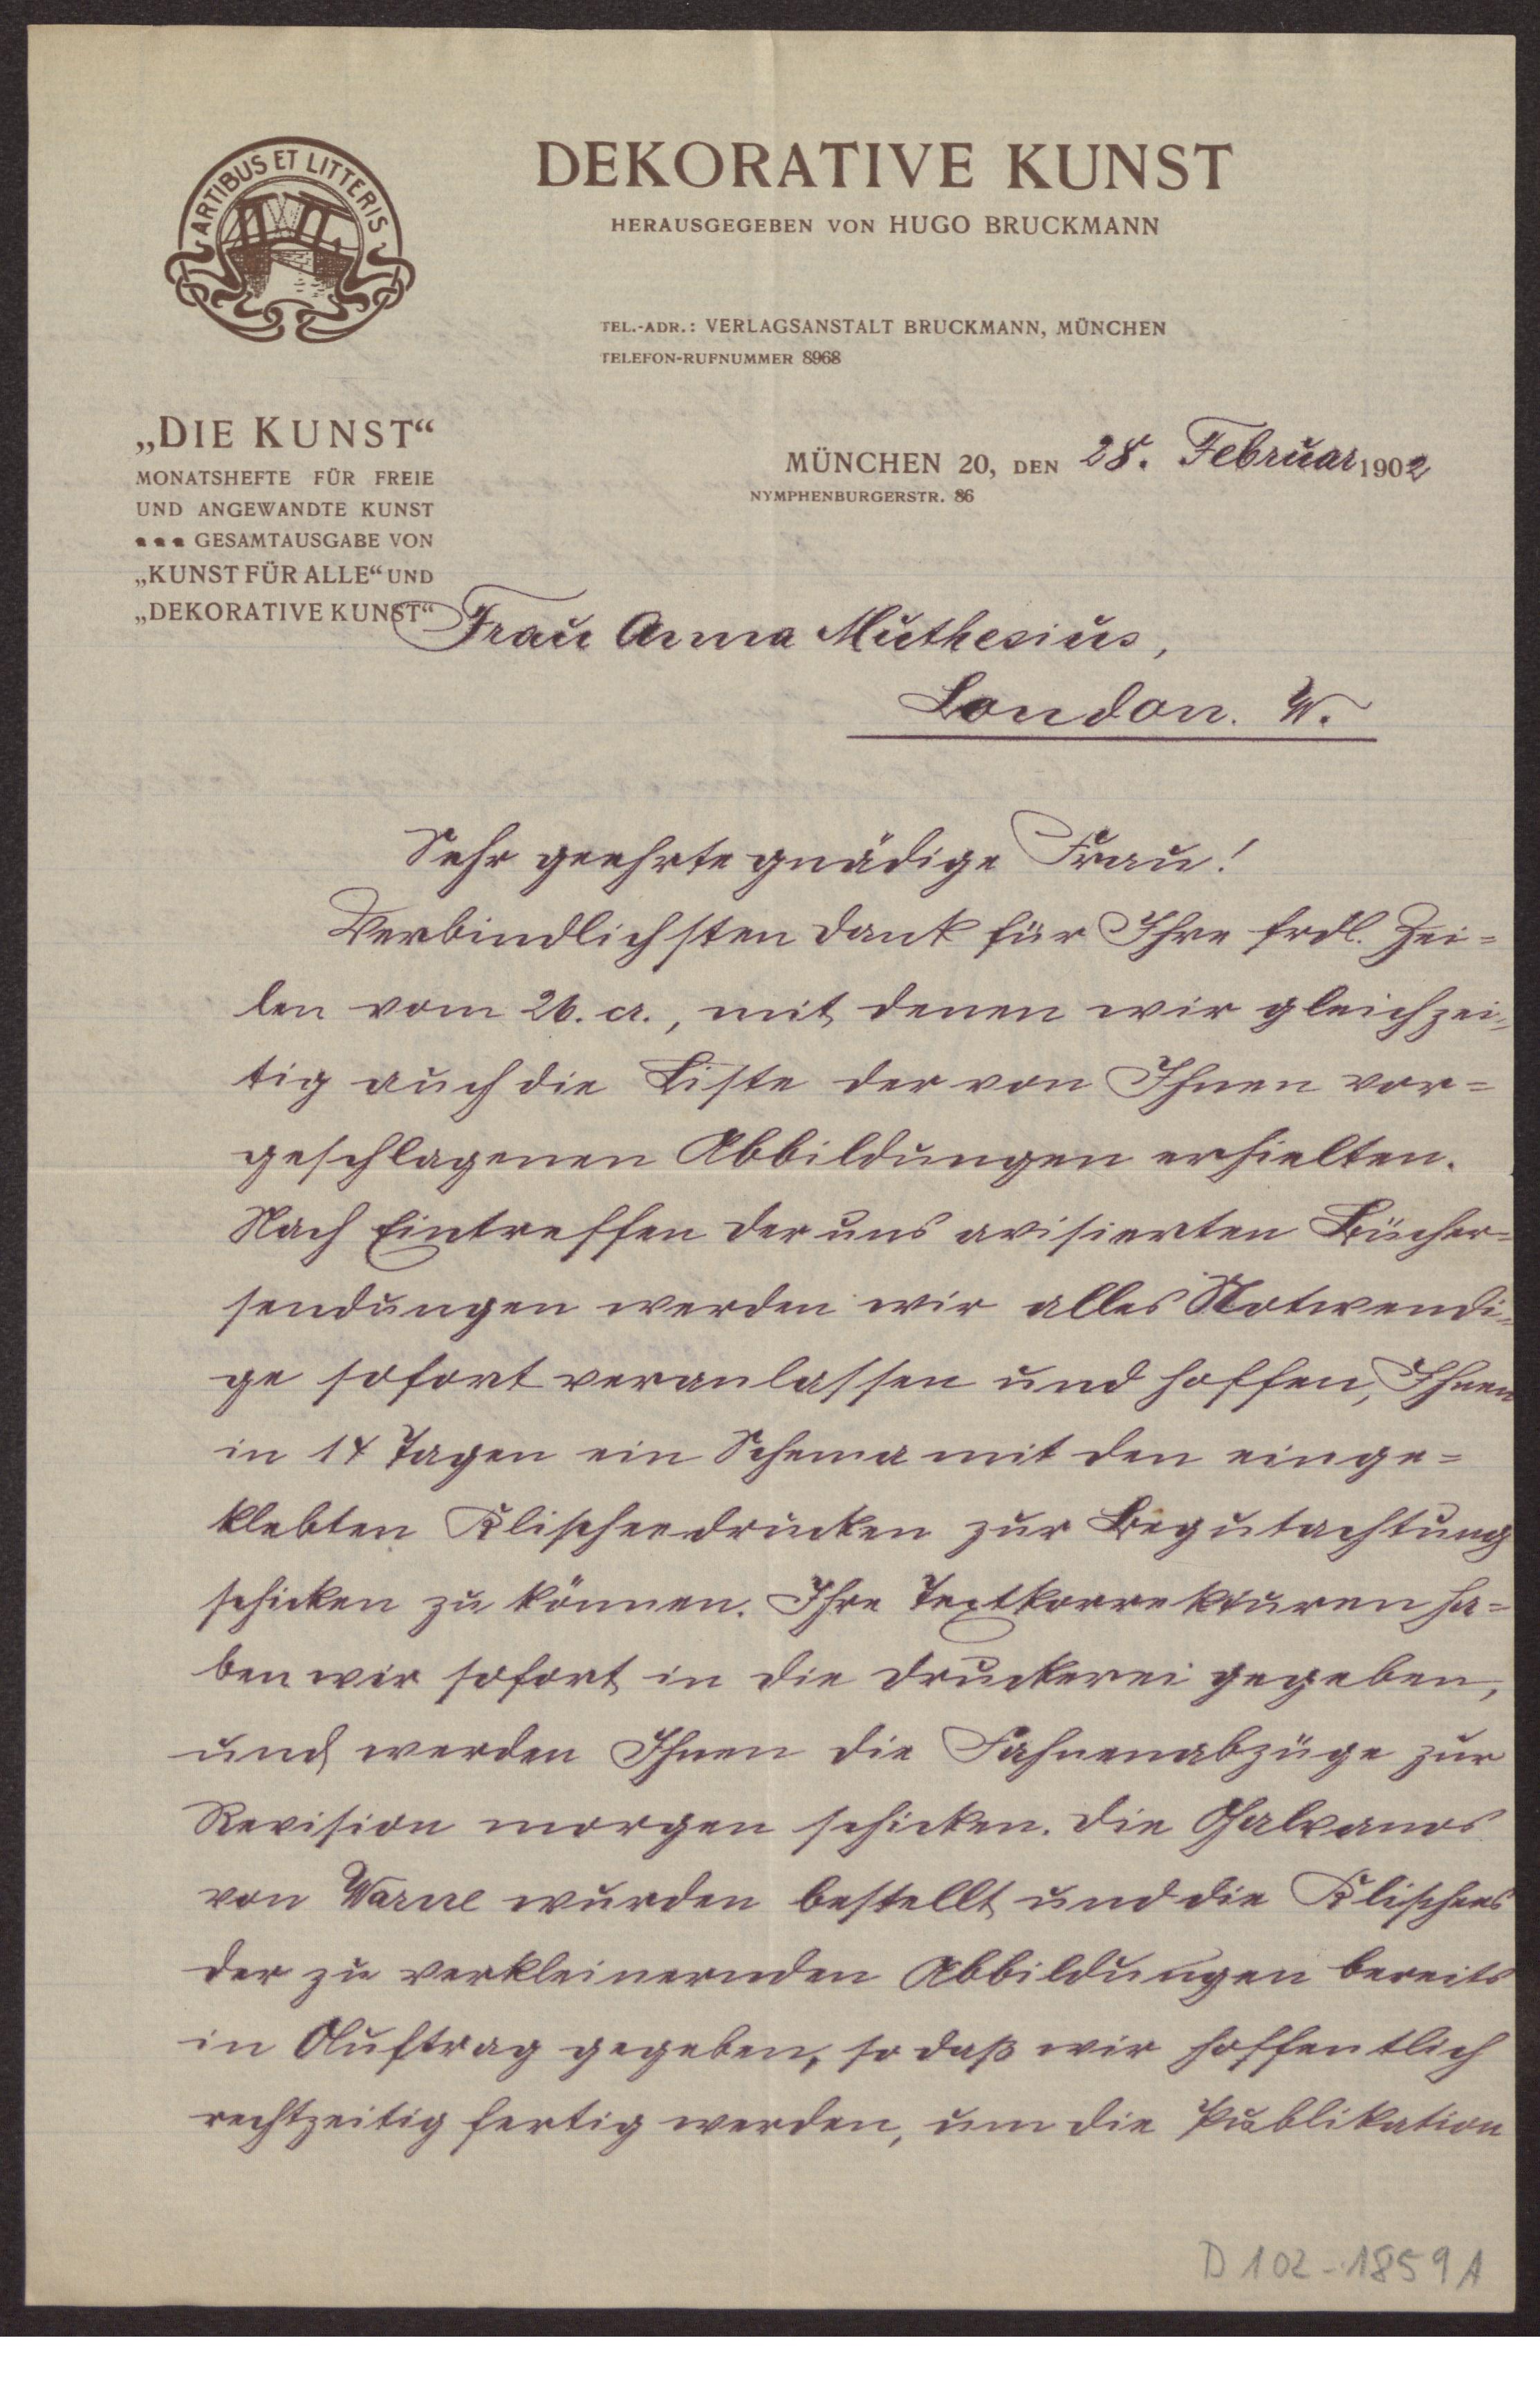 ARTIBUS ET LITTERIS
DEKORATIVE KUNST
HERAUSGEGEBEN VON HUGO BRUCKMANN
TEL.-ADR.: VERLAGSANSTALT BRUCKMANN, MÜNCHEN
TELEFON-RUFNUMMER 8968
„DIE KUNST“
MONATSHEFTE FÜR FREIE
UND ANGEWANDTE KUNST
GESAMTAUSGABE VON
„KUNST FÜR ALLE“ UND
„DEKORATIVE KUNST“
MÜNCHEN 20, DEN 28. Februar 1902
NYMPHENBURGERSTR. 86
Frau Anna Muthesius,
London. W.
Sehr geehrte gnädige Frau!
Verbindlichsten Dank für Ihre frdl. Zei=
len vom 26. cr., mit denen wir gleichzei=
tig auch die Liste der von Ihnen vor=
geschlagenen Abbildungen erhielten.
Nach Eintreffen der uns avisierten Bücher=
sendungen werden wir alles Notwendi=
ge sofort veranlassen und hoffen, Ihnen
in 14 Tagen ein Schema mit den einge=
klebten Klischeedrucken zur Begutachtung
schicken zu können. Ihre Textkorrekturen ha=
ben wir sofort in die Druckerei gegeben,
und werden Ihnen die Fahnenabzüge zur
Revision morgen schicken. Die Galvanos
von Warne wurden bestellt und die Klischees
der zu verkleinernden Abbildungen bereits
in Auftrag gegeben, so daß wir hoffentlich
rechtzeitig fertig werden, um die Publikation
D 102-1859 A